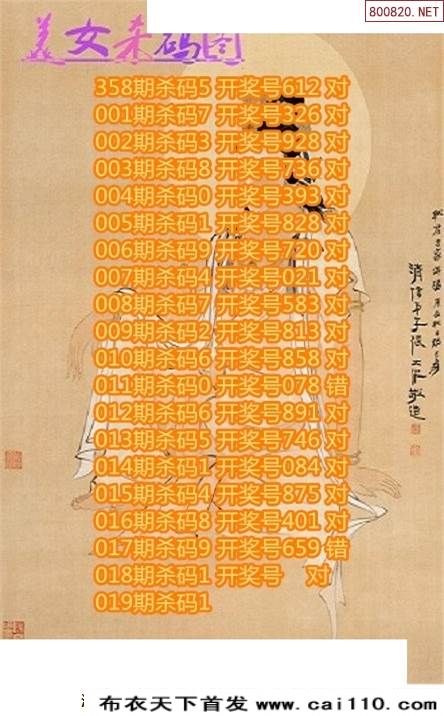 800820.NET
美女杀码图
358期杀码5 开奖号612 对
001期杀码7 开奖号326 对
002期杀码3 开奖号928 对
003期杀码8 开奖号736 对
004期杀码0 开奖号393 对
005期杀码1 开奖号828 对
006期杀码9 开奖号720 对
007期杀码4 开奖号021 对
008期杀码7 开奖号583 对
009期杀码2 开奖号813 对
010期杀码6 开奖号858 对
011期杀码0 开奖号078 错
012期杀码6 开奖号891 对
013期杀码5 开奖号746 对
014期杀码1 开奖号084 对
015期杀码4 开奖号875 对
016期杀码8 开奖号401 对
017期杀码9 开奖号659 错
018期杀码1 开奖号 对
019期杀码1
布衣天下首发 www.cai110.com